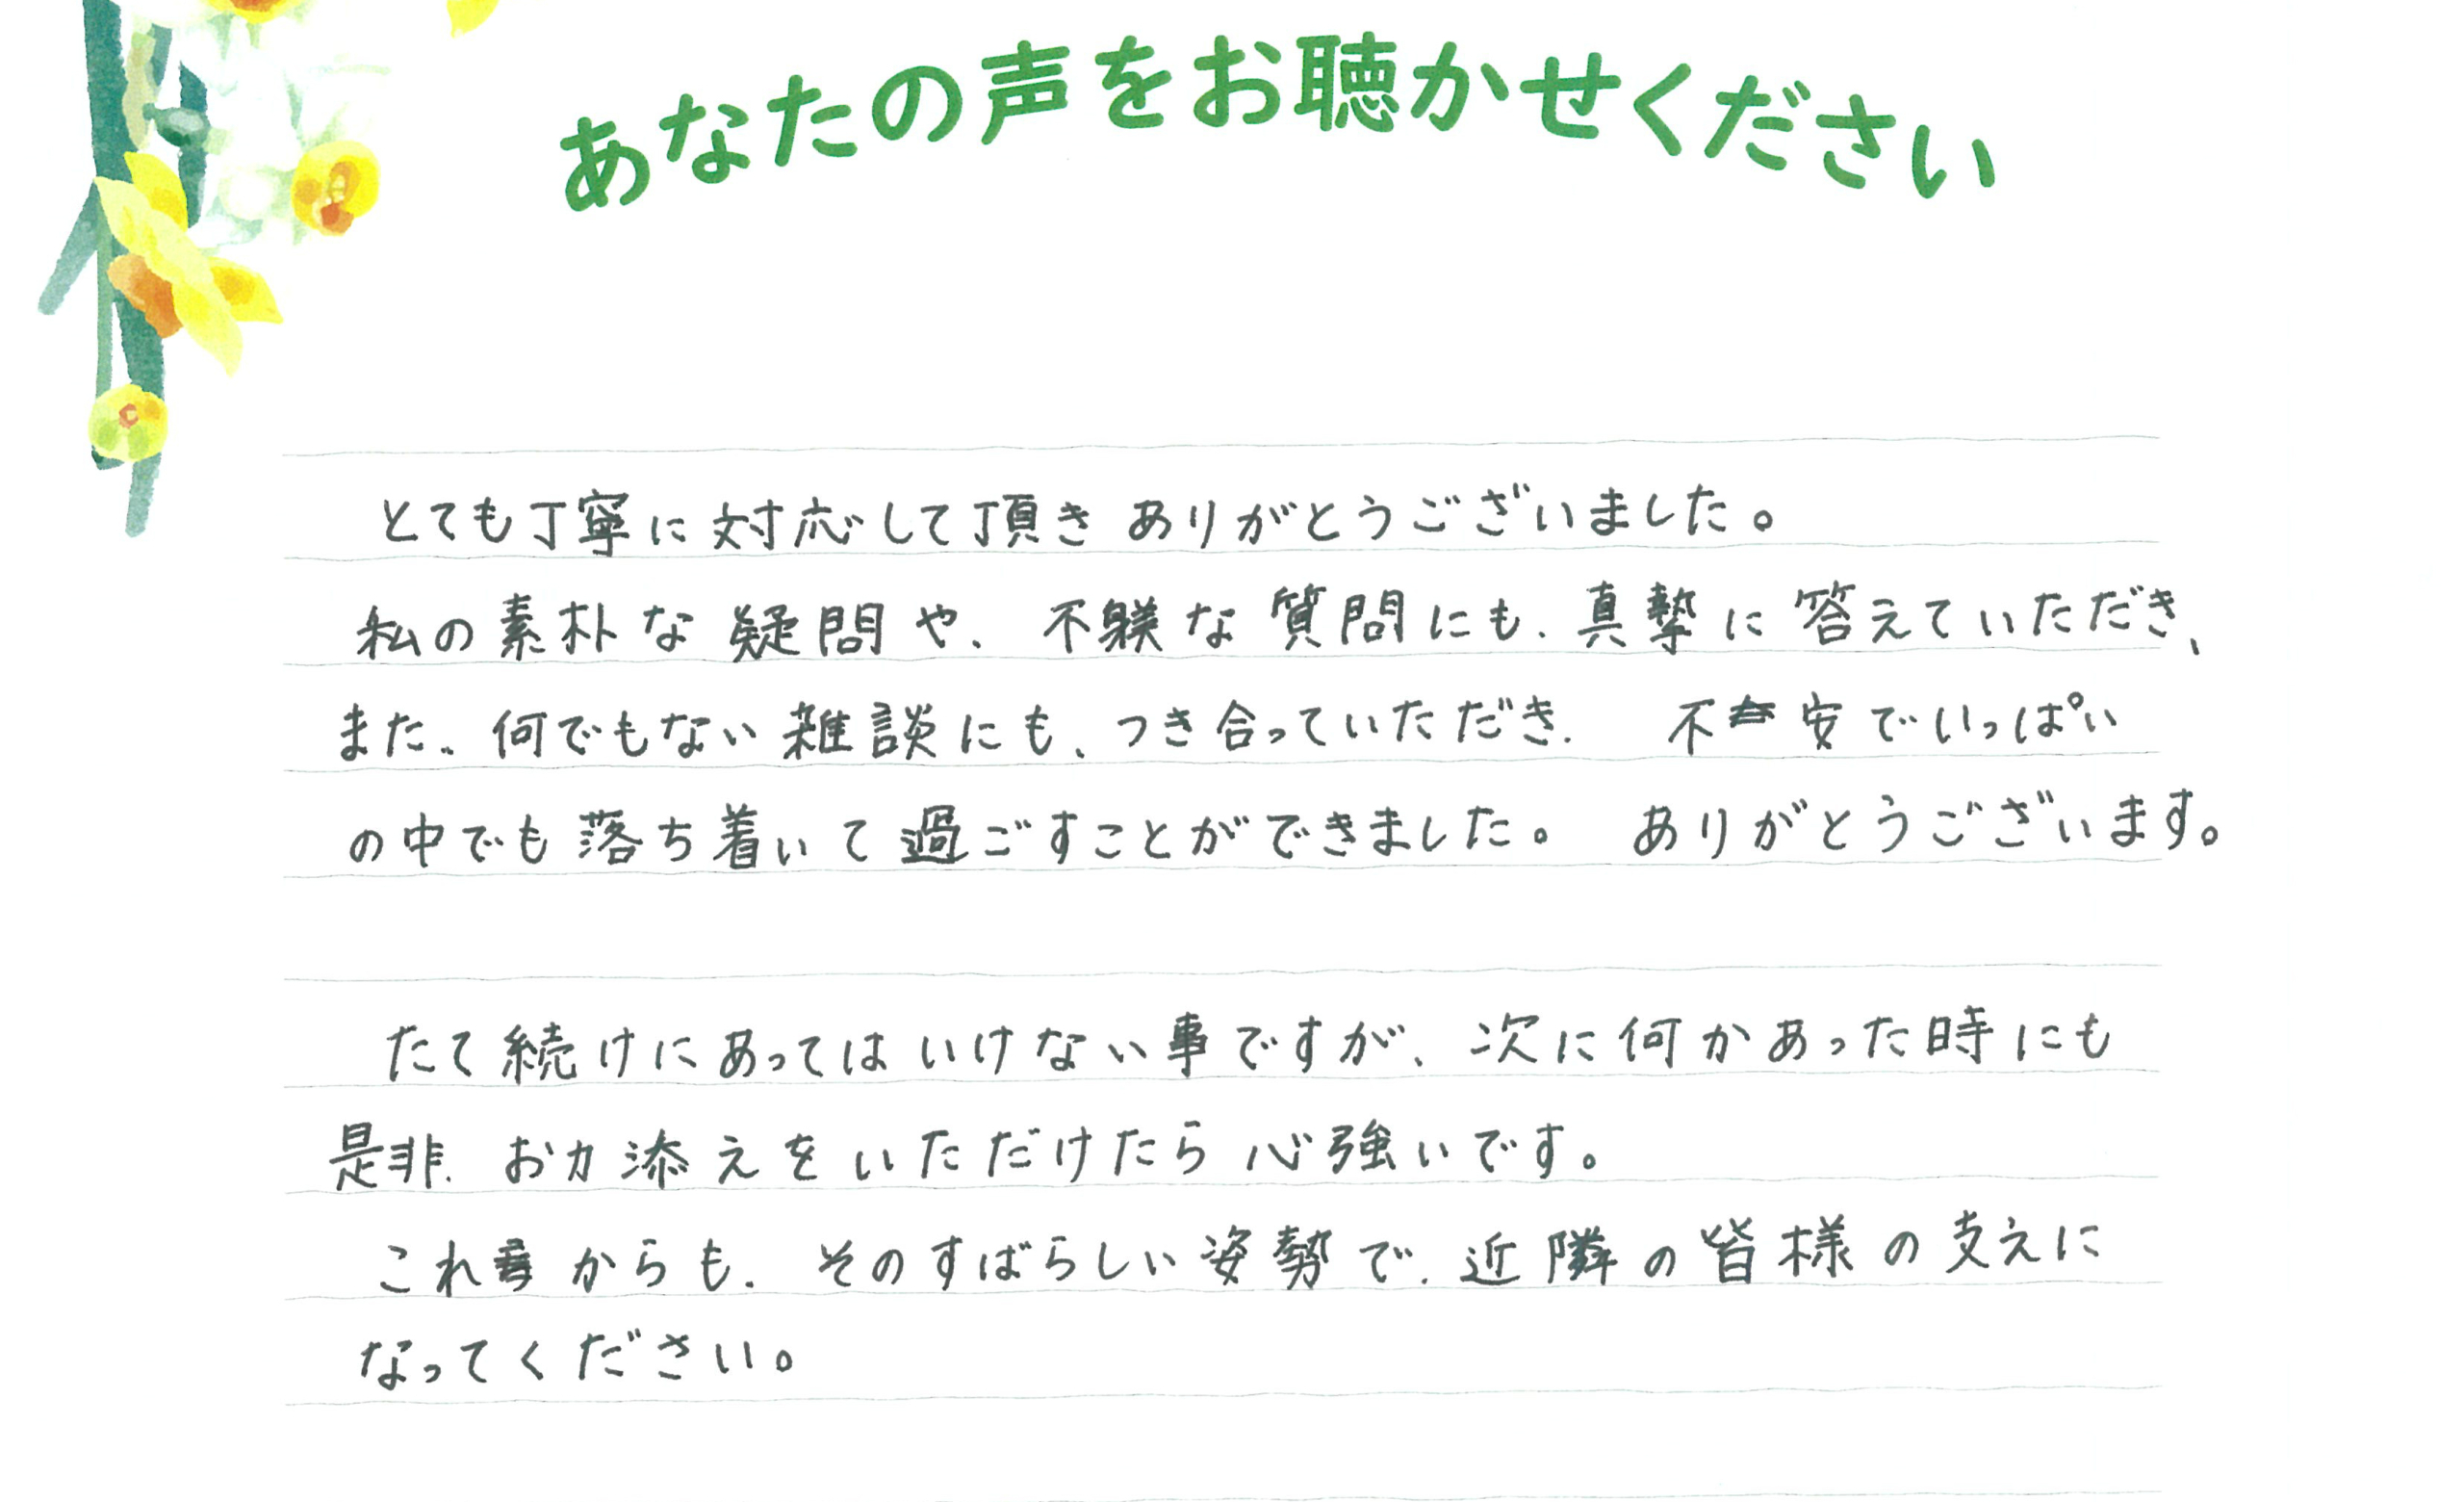 あなたの声をお聴かせください
とても丁寧に対応して頂きありがとうございました。
私の素朴な疑問や、不躾な質問にも、真摯に答えていただき、
また、何でもない雑談にも、つき合っていただき、不安でいっぱい
の中でも落ち着いて過ごすことができました。ありがとうございます。
たて続けにあってはいけない事ですが、次に何かあった時にも
是非、お力添えをいただけたら心強いです。
これからも、そのすばらしい姿勢で、近隣の皆様の支えに
なってください。